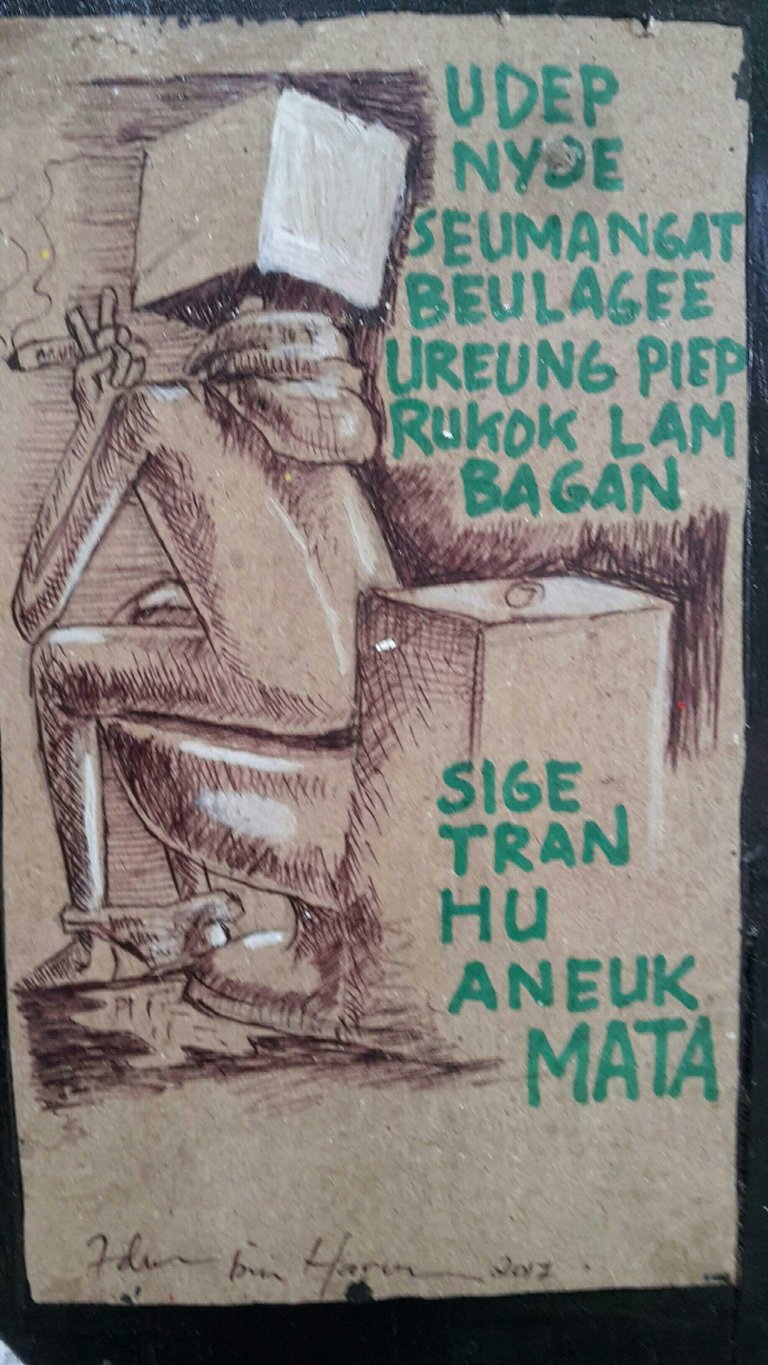 UDEP
NYOE
SEUMANGAT
BEULAGEE
UREUNG PIEP
RUKOK LAM
BAGAN
SIGE
TRAN
HU
ANEUK
MATA
bin Harun 2017